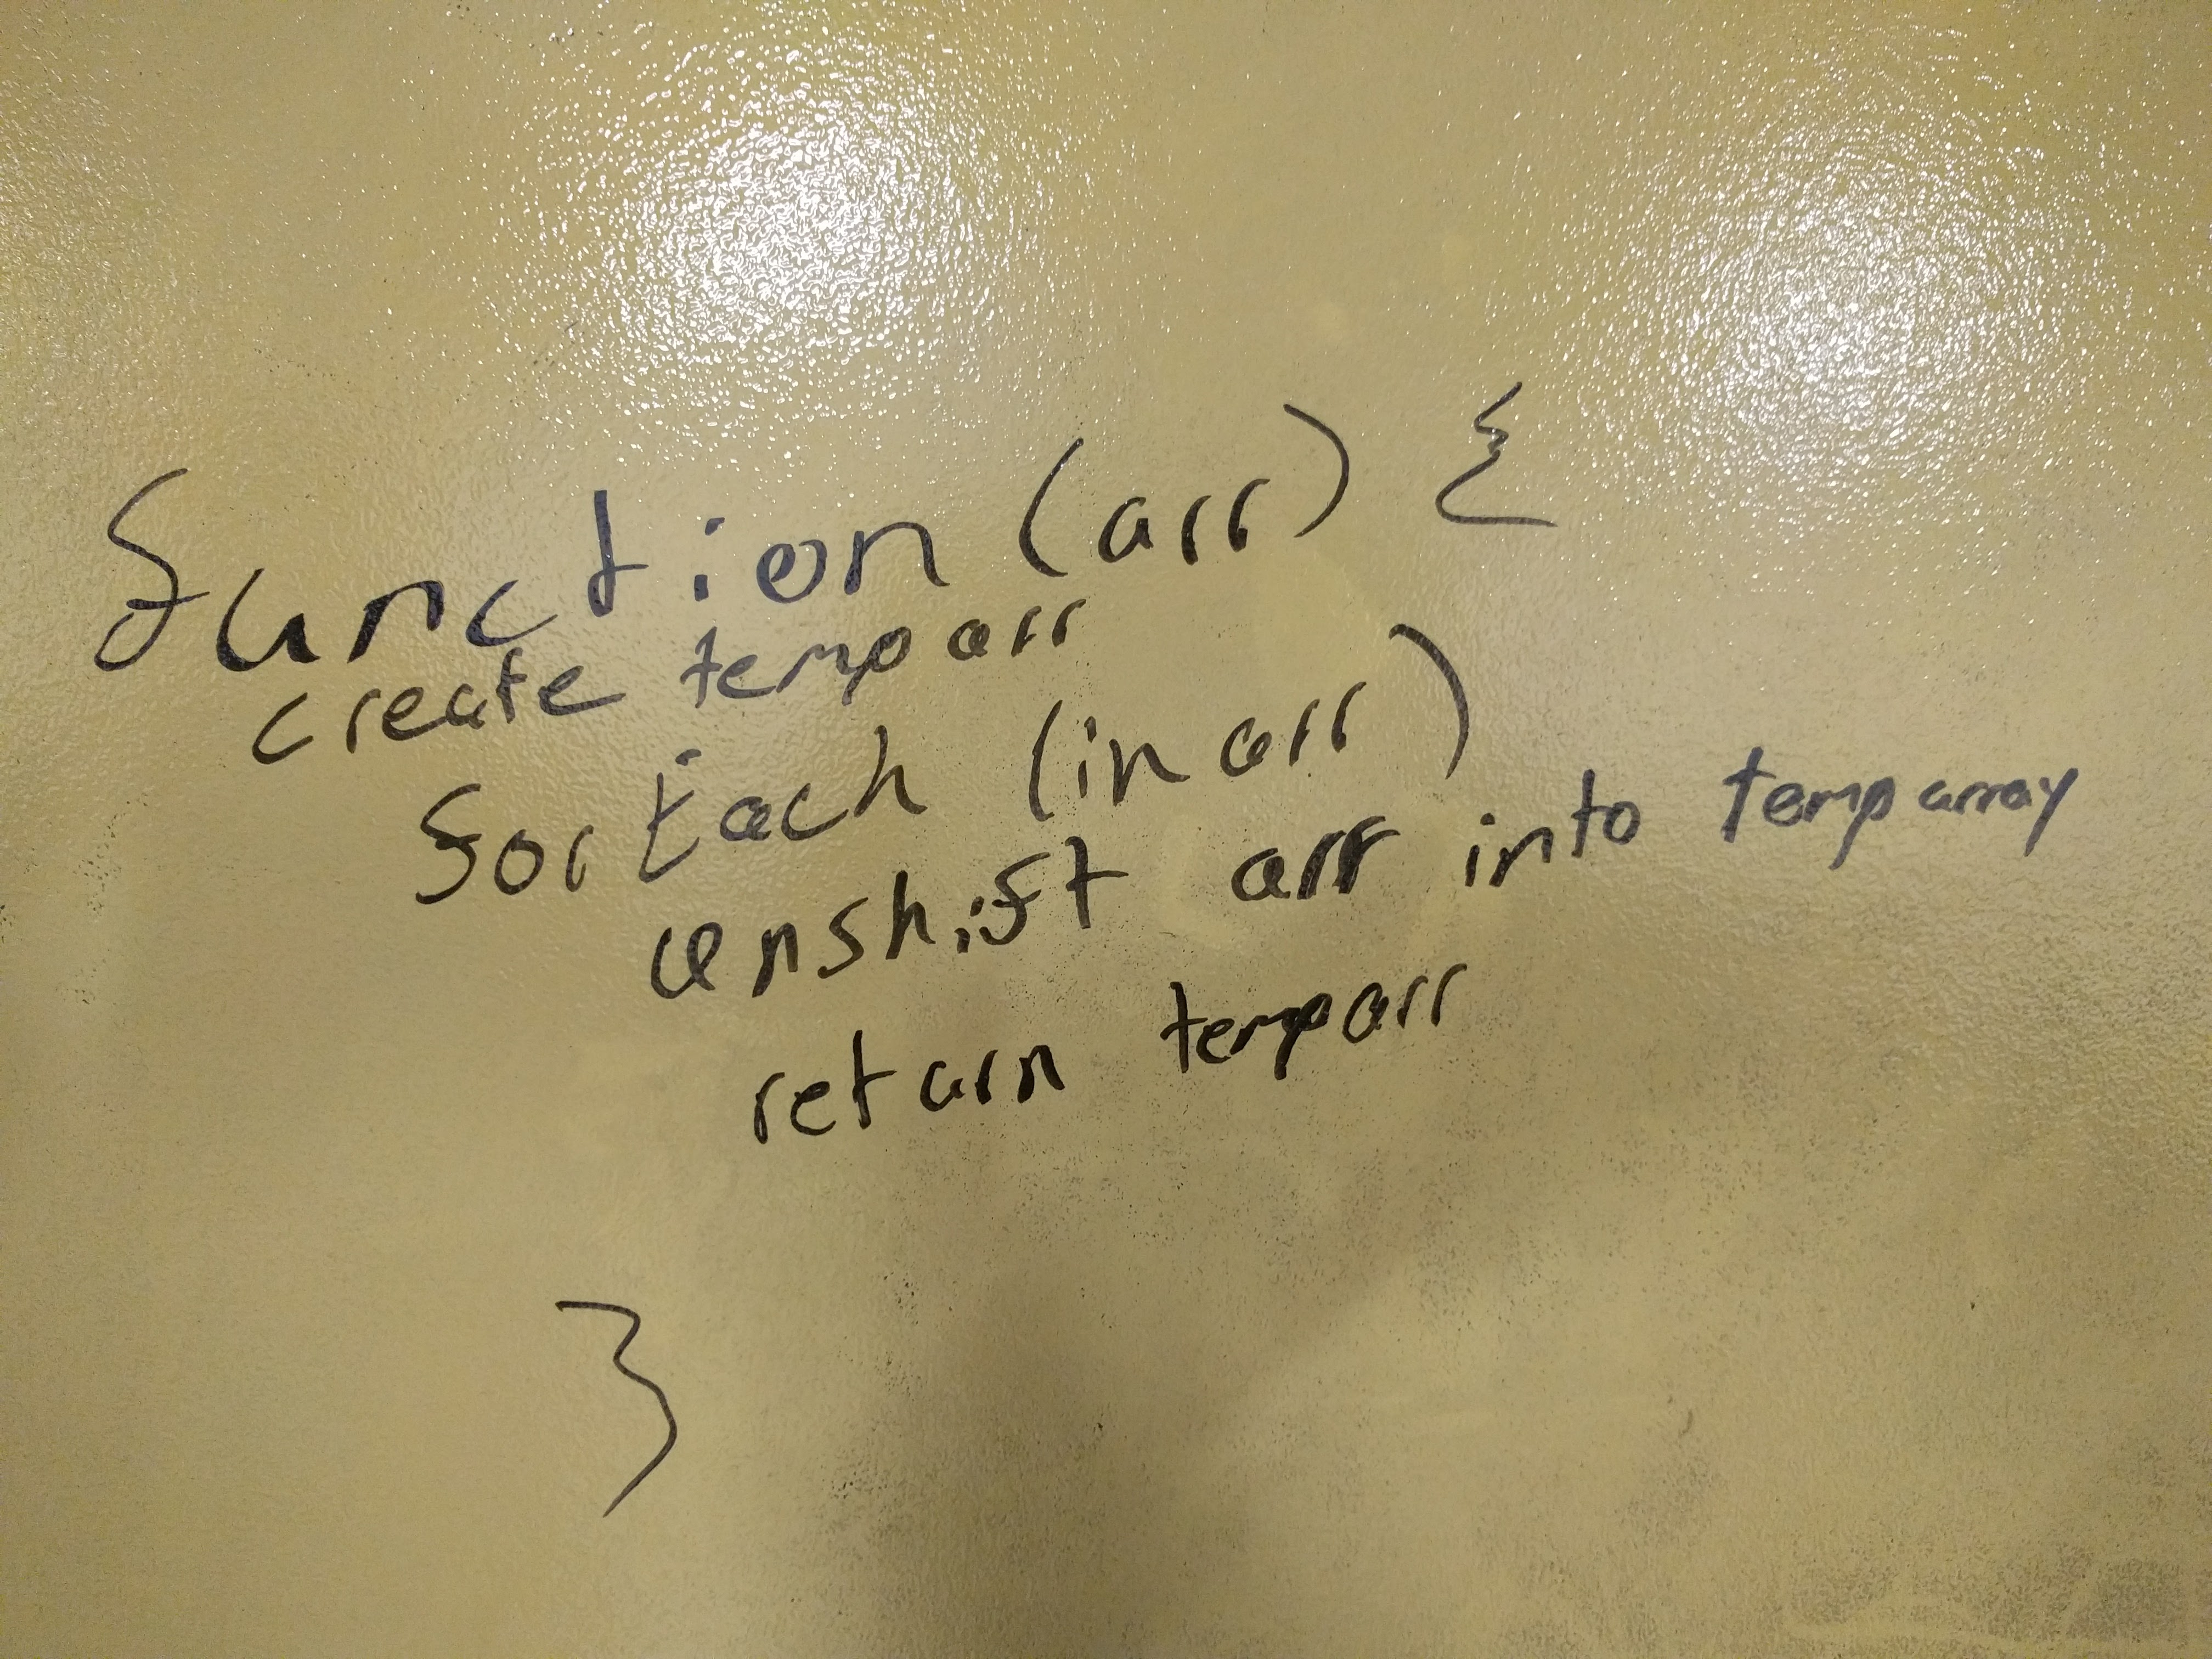 function (arr) {
create temp arr
forEach (in arr)
unshift arr into temp array
return temp arr
}